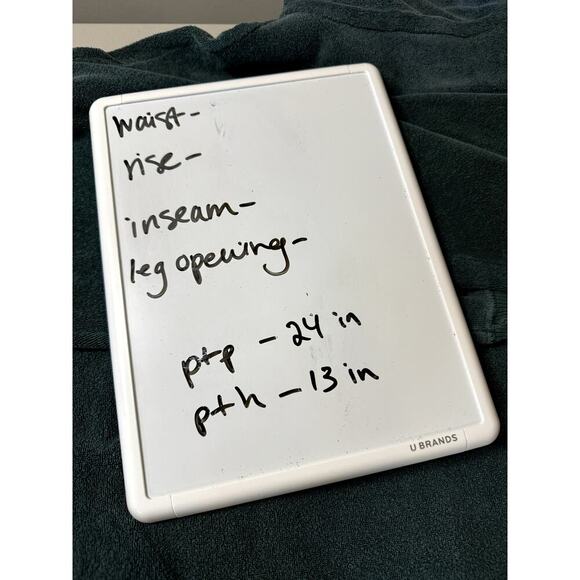 waist-
rise-
inseam-
leg opening-
ptp - 24 in
pth - 13 in
U BRANDS